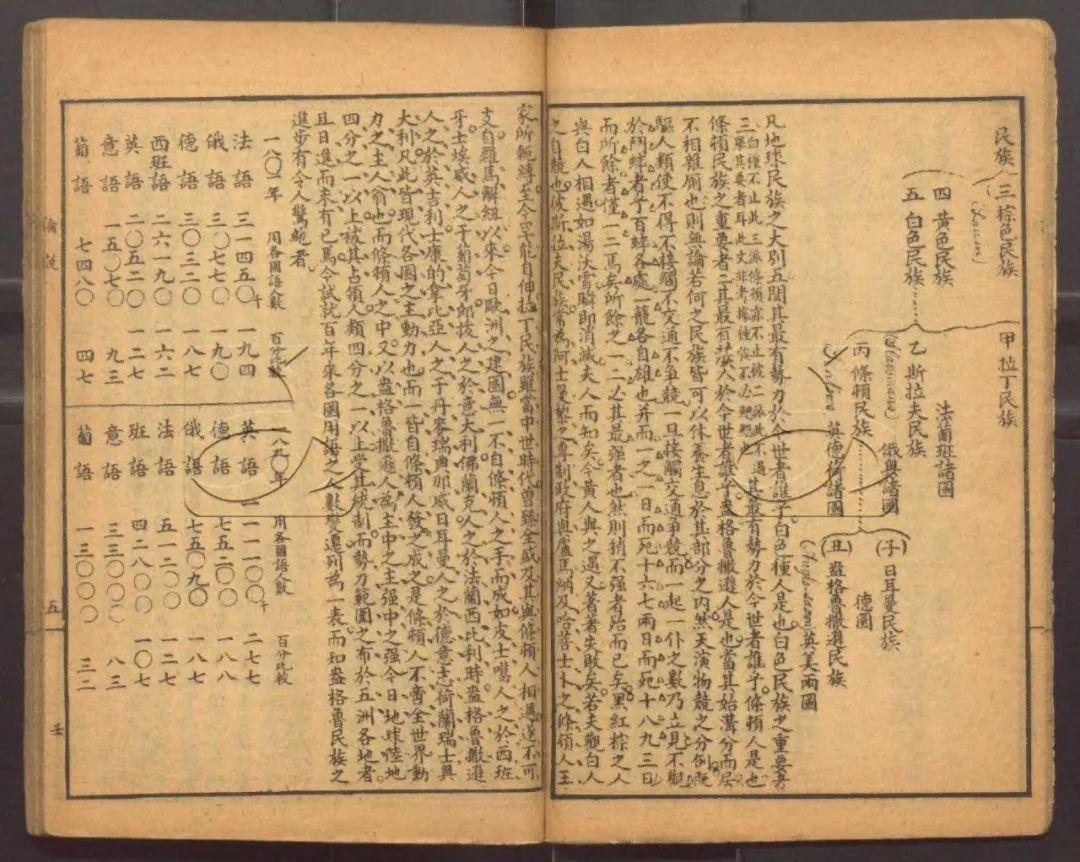 民族
三 棕色民族
四 黃色民族
五 白色民族
甲 拉丁民族
法蘭班諸國
乙 斯拉夫民族
俄奧諸國
丙 條頓民族
英德荷諸國
(子)日耳曼民族
德國
(丑)盎格魯撒遜民族
英美兩國
凡地球民族之大別五問其最有勢力於今世者誰乎白色種人是也白色民族之重要者
三白種不止此三派條頓亦不止彼二派此不過舉其要者耳此文非考據種族不必其最有勢力於今世者誰乎條頓人是也
條頓民族之重要者二其最有勢力於今世者誰乎盎格魯撒遜人是也當其始溝分而居
不相雜廁也則無論若何之民族皆可以休養生息於其部分之內然天演物競之公例既
驅人類使不得不接觸不交通不爭競一旦接觸交通爭競而一起一仆之數乃立見不觀
於鬥蟀者乎百蟀各處一籠各自雄也并而一之一日而死十六七兩日而死十八九三日
而所餘者僅一二焉矣所餘之一二必其最強者也然則稍不強者殆而已矣黑紅棕之人
與白人相遇如湯沃雪瞬即消滅夫人而知矣今黃人與之遇又著著失敗矣若夫觀白人
之自競也彼斯拉夫民族常為阿士曼黎之專制政府與盧馬納及哈菩士卜之條頓人王
家所軛縛至今罕能自伸拉丁民族雖當中世時代曾臻全盛及其與條頓人相遇遂不可
支自羅馬解紐以來今日歐洲之建國無一不自條頓人之手而成如皮士噶人之於西班
牙士埃威人之于葡萄牙郎拔人之於意大利佛蘭克人之於法蘭西比利時盎格魯撒遜
人之於英吉利士康的拿比亞人之于丹麥瑞典那威日耳曼人之於德意志荷蘭瑞士奧
大利凡此皆現代各國之主動力也而一皆自條頓人發之成之是條頓人不啻全世界動
力之主人翁也而條頓人之中又以盎格魯撒遜人為主中之主強中之強今日地球陸地
四分之一以上被其占領人類四分之一以上受其統制而勢力範圍之布於五洲各地者
且日進而未有已焉今試就百年來各國用語之人數變遷列為一表而知盎格魯民族之
進步有令人驚絕者
一八〇一年 用各國語人數 百分比較
法語 三一四五〇千 一九四
俄語 三〇七七〇 一九〇
德語 三〇三二〇 一八七
西班語 二六一九〇 一六二
英語 二〇五二〇 一二七
意語 一五〇七〇 九三
葡語 七四八〇 四七
一八九〇年 用各國語人數 百分比較
英語 一一一一〇〇千 二七七
德語 七五二〇〇 一八八
俄語 七五〇九〇 一八七
法語 五一二〇〇 一二七
班語 四二八〇〇 一〇七
意語 三三〇〇〇 八三
葡語 一三〇〇〇 三二
論說
五
壬